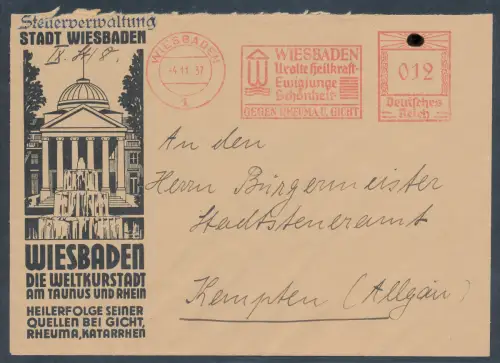 Steuerverwaltung
STADT WIESBADEN
WIESBADEN
-4.11.37
1
WIESBADEN
Uralte Heilkraft-
Ewigjunge
Schönheit
GEGEN RHEUMA U. GICHT
012
Deutsches
Reich
An den
Herrn Bürgermeister
Stadtsteueramt
Kempten (Allgäu)
WIESBADEN
DIE WELTKURSTADT
AM TAUNUS UND RHEIN
HEILERFOLGE SEINER
QUELLEN BEI GICHT,
RHEUMA, KATARRHEN